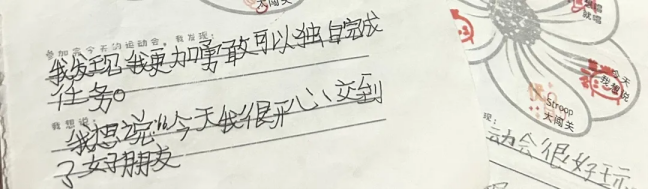 大闯关
参加完今天的运动会,我发现:
我发现我更加勇敢可以独自完成
任务。
我想说:
我想说:"今天我很开心,交到
了好朋友
就唱
今天
我想说
Stroop
大闯关
动会很好玩